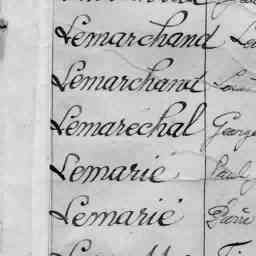 Lemarchand
Lemarchand
Lemaréchal George
Lemarié Paul
Lemarié Pierre